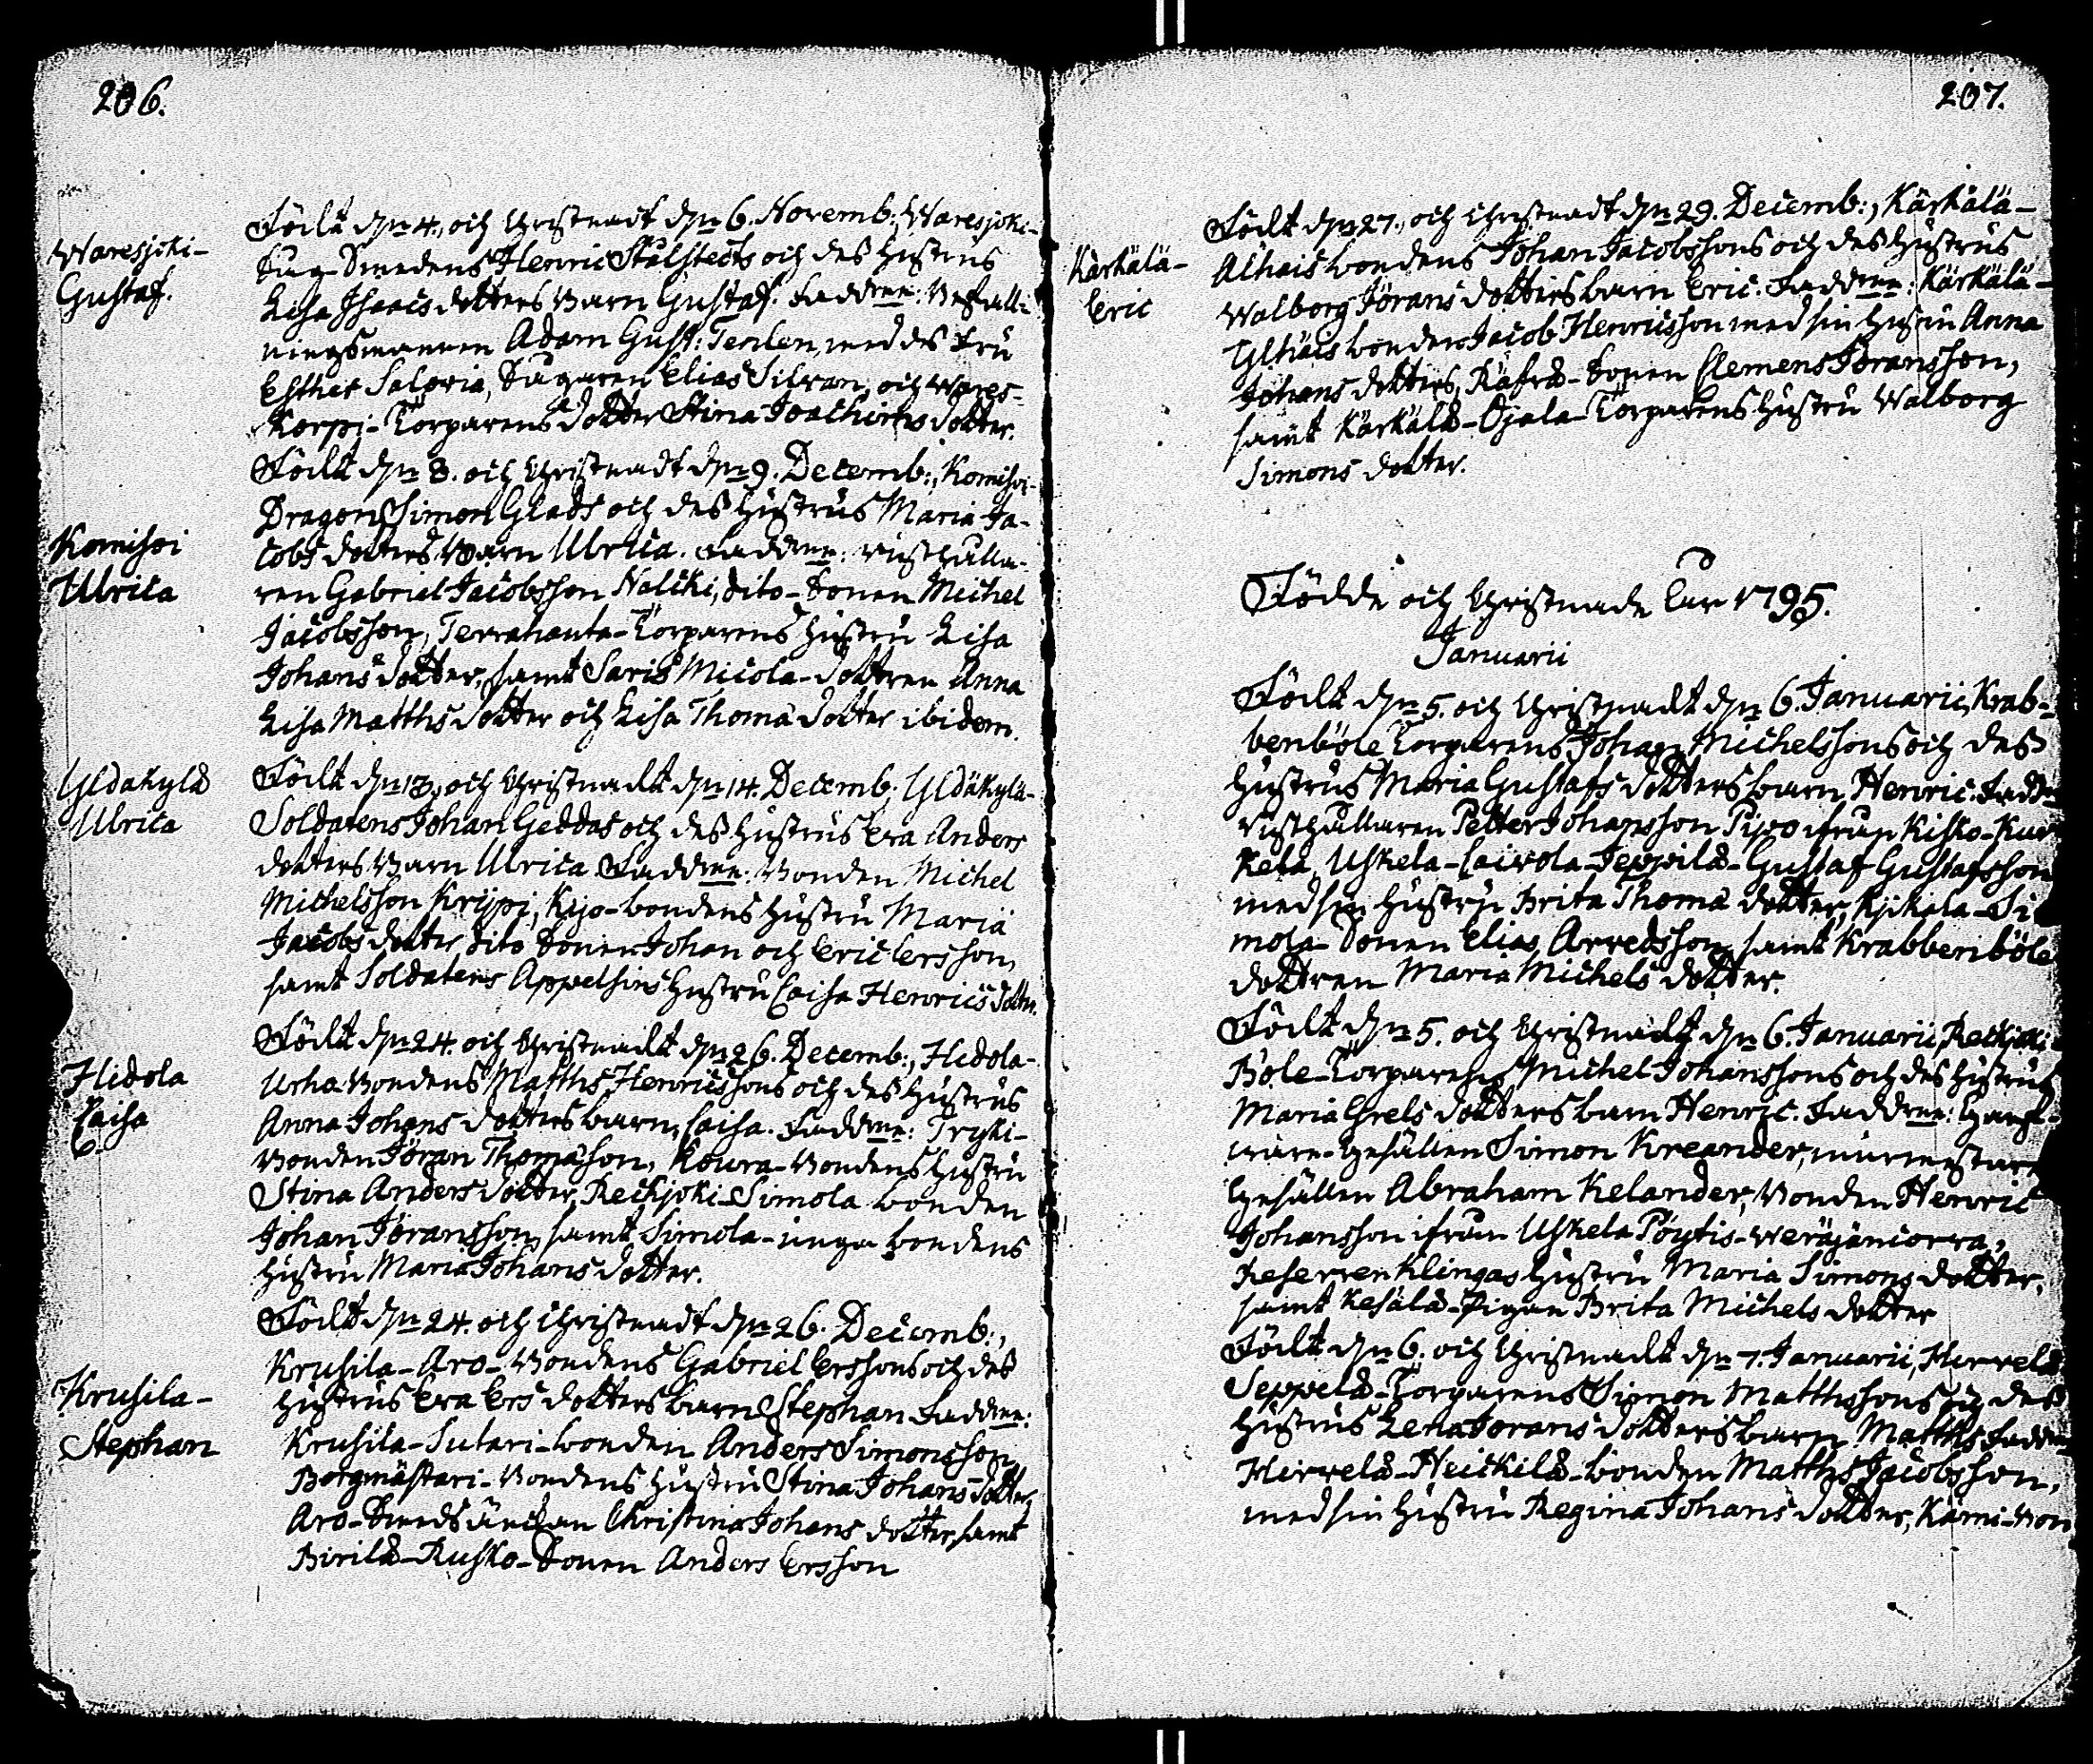 206.
Waresjoki-
Gustaf.
Födt d:n 4. och Christnadt d:n 6. Novemb:, Waresjoki-
Såg-Smedens Henric Stålstedts och des Hustrus
Lisa Isaacs dotters Barn Gustaf. Faddrar: Befall-
ningsmannen Adam Gust: Tenlen, med des Fru
Esther Saloria, Sågaren Elias Silvan, och Wares-
Korpi-Torparens dotter Stina Joachims dotter.
Komisoi
Ulrica
Födt d:n 8. och Christnadt d:n 9. Decemb:, Komisoi-
Dragon Simon Glads och des Hustrus Maria Ja-
cobs dotters Barn Ulrica. Faddrar: Rusthålla-
ren Gabriel Jacobsson Nalcki, dito-Sonen Michel
Jacobsson, Terrahauta-Torparens Hustru Lisa
Johans dotter, samt Saris Micola-dottren Anna
Lisa Matths dotter och Lisa Thomä dotter ibidem.
Yldäkylä
Ulrica
Födt d:n 13. och Christnadt d:n 14. Decemb:, Yldäkylä-
Soldatens Johan Geddas och des Hustrus Eva Anders
dotters Barn Ulrica. Faddrar: Bonden Michel
Michelsson Krijpi, Kijo-bondens Hustru Maria
Jacobs dotter dito Sonen Johan och Eric Ersson,
samt Soldatens Appelsins Hustru Caisa Henrics dotter.
Hidola
Caisa
Födt d:n 24. och Christnadt d:n 26. Decemb:, Hidola-
Urha Bondens Matths Henricssons och des Hustrus
Anna Johans dotters barn, Caisa. Faddrar: Tryki-
Bonden Jöran Thomäson, Kowra-Bondens Hustru
Stina Anders dotter, Reckjoki-Simola bonden
Johan Jöransson, samt Simola-unga bondens
Hustru Maria Johans dotter.
Krusila-
Stephan
Födt d:n 24. och Christnadt d:n 26. Decemb:,
Krusila-Aro-Bondens Gabriel Erssons och des
Hustrus Eva Ers dotters barn Stephan. Faddrar:
Krusila-Sutari-bonden Anders Simonsson,
Borgmästari-Bondens Hustru Stina Johans dotter,
Aro-Smeds änckan Christina Johans dotter, samt
Birilä-Rusko-Sonen Anders Ersson
207.
Kärkälä-
Eric
Födt d:n 27. och Christnadt d:n 29. Decemb:, Kärkälä-
Alhais bondens Johan Jacobssons och des Hustrus
Walborg Jörans dotters barn Eric. Faddrar: Kärkälä-
Ylhäis bonden Jacob Henricsson med sin Hustru Anna
Johans dotter, Sonen Clemens Jöransson,
samt Kärkälä-Ojala-Torparens Hustru Walborg
Simons dotter.
Födde och Christnade Åhr 1795.
Januarii
Födt d:n 5. och Christnadt d:n 6. Januarii, Krab-
benböle Torparens Johan Michelssons och des
Hustrus Maria Gustafs dotters barn Henric. Fadd:
Rusthållaren Petter Johansson Pijoo ifrån Kisko-Kur
kela, Uskela-Caivola-Seppilä-Gustaf Gustafsson
med sin Hustru Brita Thomä dotter, Kjikala-Si
mola-Sonen Elias Arvedsson, samt Krabbenböle
dottren Maria Michels dotter.
Födt d:n 5. och Christnadt d:n 6. Januarii, Reckjoki
Böle-Torparens Michel Johanssons och des Hustrus
Maria Grels dotters barn Henric. Faddrar:
Gesällen Simon Kreander, murmestare
Gesällen Abraham Kelander, Bonden Henric
Johansson ifrån Uskela Pöytis-Weräjäniorra,
Reserven Klingas Hustru Maria Simons dotter,
samt Kesälä-Pigan Brita Michels dotter
Födt d:n 6. och Christnadt d:n 7. Januarii, Hirvelä
Seppelä-Torparens Simon Matthssons och des
Hustrus Lena Jorans dotters barn Matths. Faddrar
Hirvelä-Heickilä-bonden Matths Jacobsson,
med sin Hustru Regina Johans dotter, Kämi-Bon